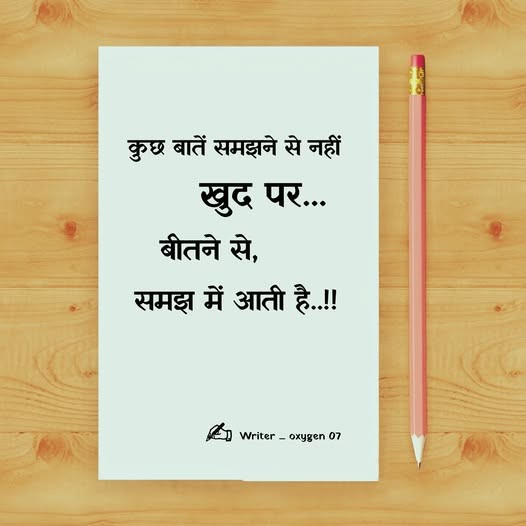 कुछ बातें समझने से नहीं
खुद पर...
बीतने से,
समझ में आती है..!!
Writer _ oxygen 07